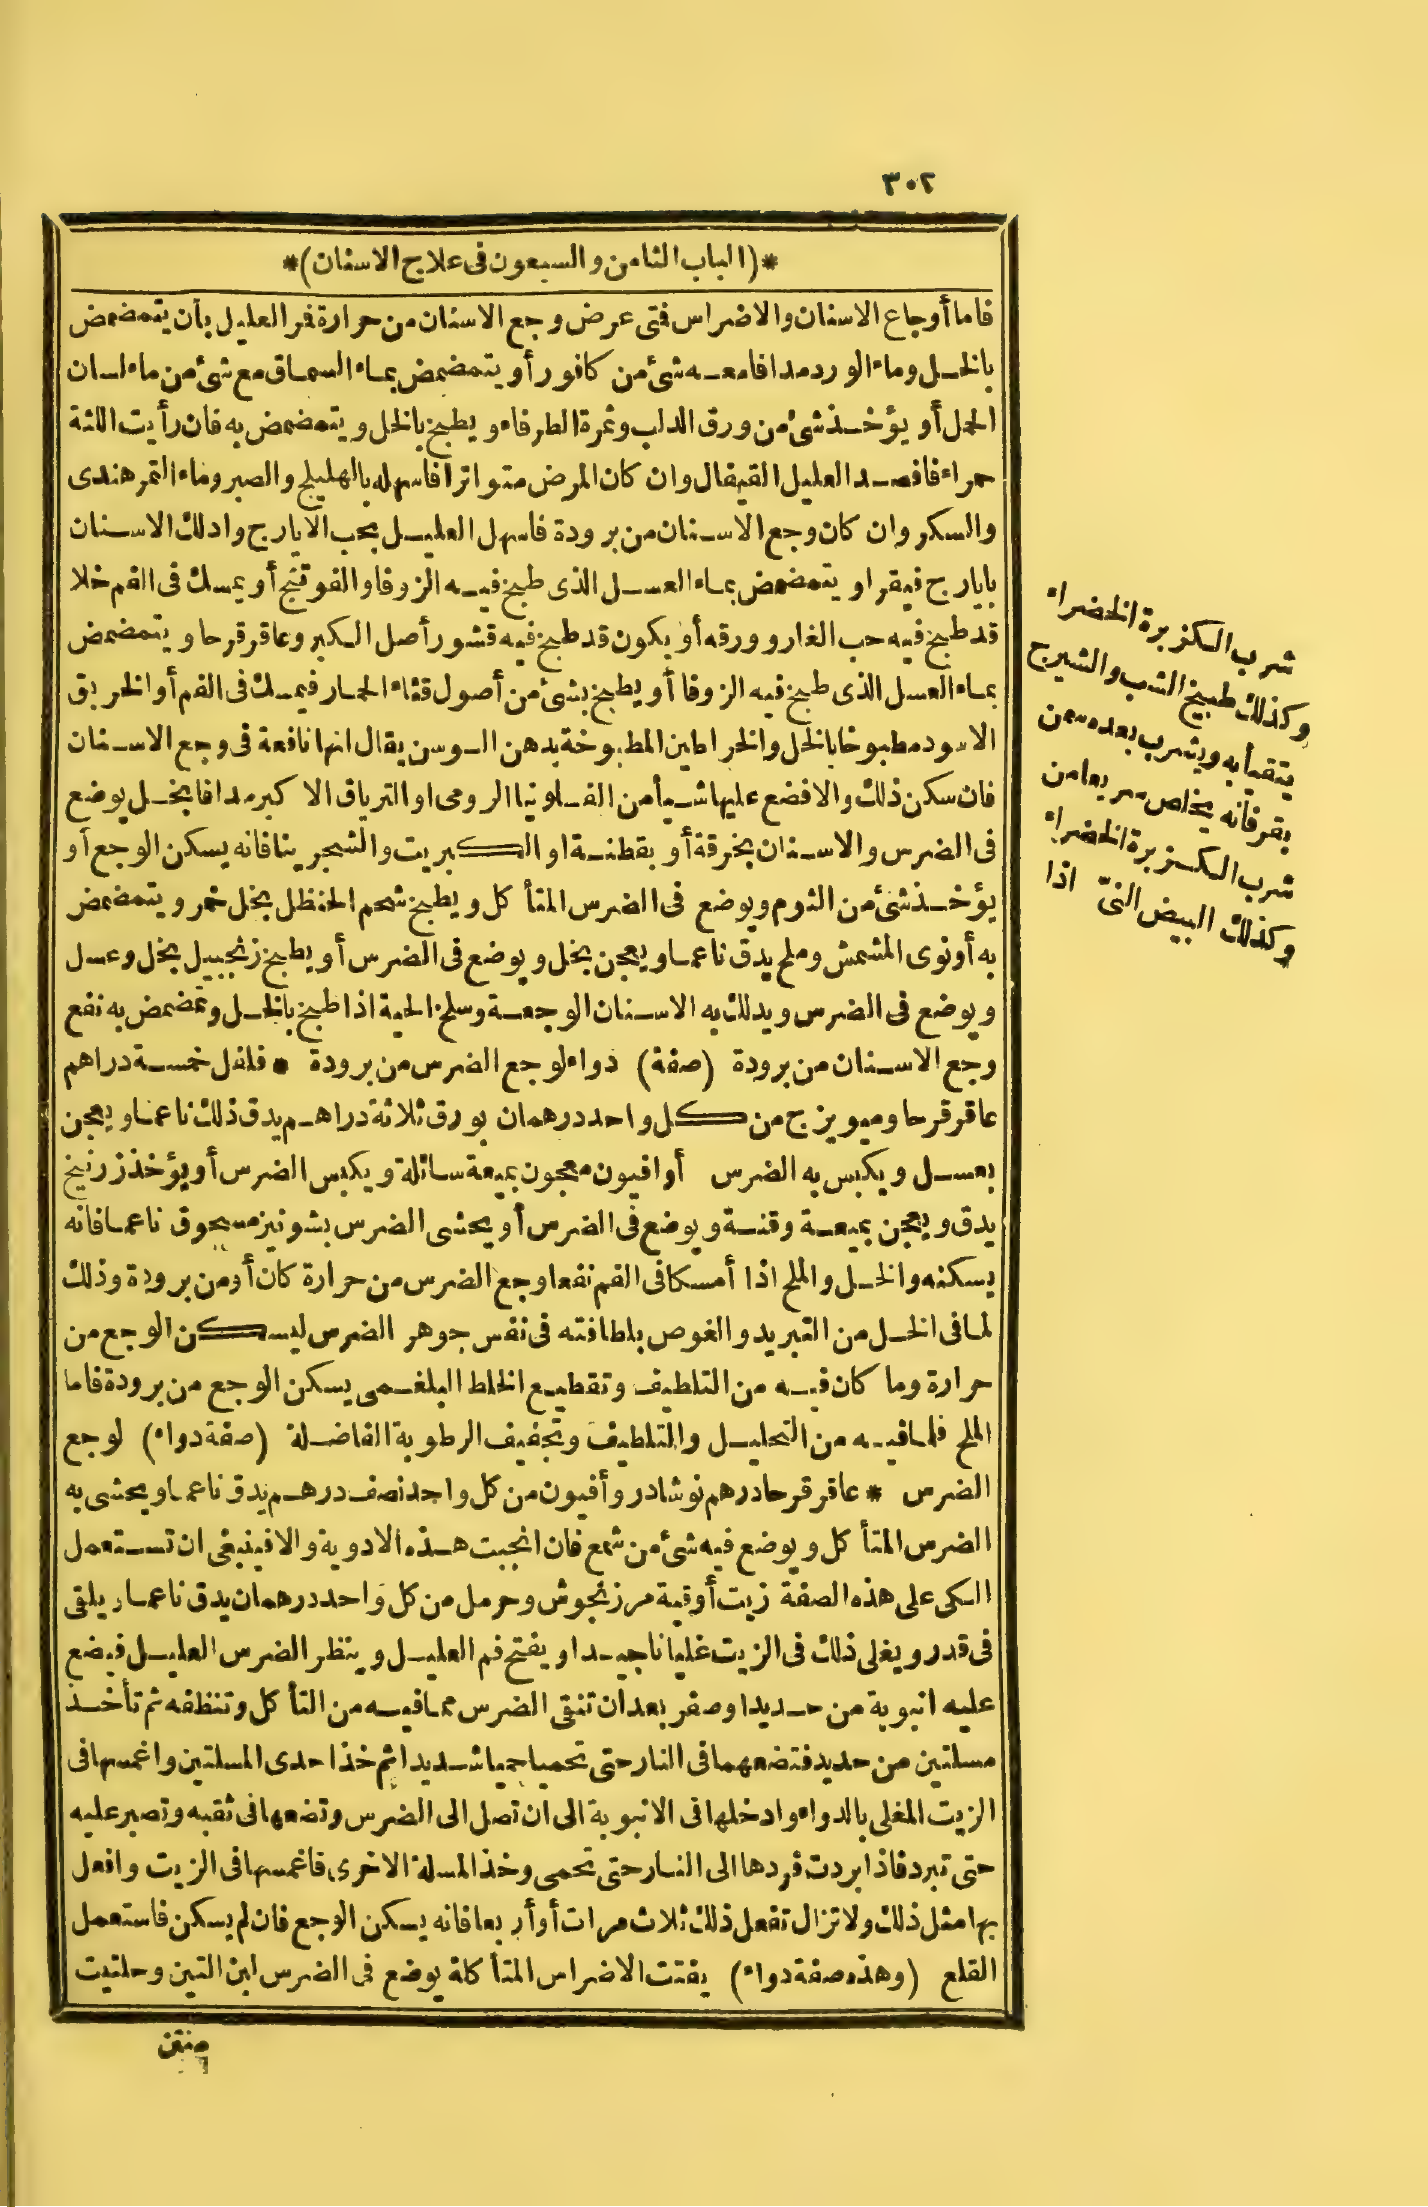 ٣٠٢
*(الباب الثامن والسبعون فى علاج الاسنان)*
فاما أوجاع الاسنان والاضراس فتى عرض وجع الاسنان من حرارة فمر العليل بأن يتمضمض
بالخل وماء الورد مدافا معه شئ من كافور أو يتمضمض بماء السماق مع شئ من ماء لسان
الحمل أو يؤخذ شئ من ورق الدلب وثمرة الطرفاء ويطبخ بالخل ويتمضمض به فان رأيت اللثة
حمراء فافصد العليل القيفال وان كان المرض متواترا فاسهله بالهليلج والصبر وماء التمر هندى
والسكر وان كان وجع الاسنان من برودة فاسهل العليل بحب الايارج وادلك الاسنان
بايارج فيقرا ويتمضمض بماء العسل الذى طبخ فيه الزوفا والفوتنج أو يمسك فى الفم خلا
قد طبخ فيه حب الغار وورقه أو يكون قد طبخ فيه قشور أصل الكبر وعاقرقرحا ويتمضمض
بماء العسل الذى طبخ فيه الزوفا أو يطبخ بشئ من أصول قثاء الحمار فيمسك فى الفم أو الخربق
الاسود مطبوخا بالخل والخراطين المطبوخة بدهن السوسن يقال انها نافعة فى وجع الاسنان
فان سكن ذلك والا فضع عليها شيأ من الفلونيا الرومى او الترياق الاكبر مدافا بخل يوضع
فى الضرس والاسنان بخرقة أو بقطنة او الكبريت والشجرينا فانه يسكن الوجع أو
يؤخذ شئ من الثوم ويوضع فى الضرس المتأكل ويطبخ شحم الحنظل بخل خمر ويتمضمض
به أو نوى المشمش وملح يدق ناعما ويعجن بخل ويوضع فى الضرس أو يطبخ زنجبيل بخل وعسل
ويوضع فى الضرس ويدلك به الاسنان الوجعة وسلخ الحية اذا طبخ بالخل وتمضمض به نفع
وجع الاسنان من برودة (صفة) دواء لوجع الضرس من برودة * فلفل خمسة دراهم
عاقرقرحا وميويزج من كل واحد درهمان بورق ثلاثة دراهم يدق ذلك ناعما ويعجن
بعسل ويكبس به الضرس أو افيون معجون بميعة سائلة ويكبس الضرس أو يؤخذ زرنيخ
يدق ويعجن بميعة وقنة ويوضع فى الضرس أو يحشى الضرس بشونيز مسحوق ناعما فانه
يسكنه والخل والملح اذا أمسكا فى الفم نفعا وجع الضرس من حرارة كان أو من برودة وذلك
لما فى الخل من التبريد والغوص بلطافته فى نفس جوهر الضرس ليسكن الوجع من
حرارة وما كان فيه من التلطيف وتقطيع الخلط البلغمى يسكن الوجع من برودة فاما
الملح فلما فيه من التحليل والتلطيف وتجفيف الرطوبة الفاضلة (صفة دواء) لوجع
الضرس * عاقرقرحا درهم نوشادر وأفيون من كل واحد نصف درهم يدق ناعما ويحشى به
الضرس المتأكل ويوضع فيه شئ من شمع فان انجبت هذه الادوية والا فينبغى ان تستعمل
الكى على هذه الصفة زيت أوقية مرزنجوش وحرمل من كل واحد درهمان يدق ناعما ويلقى
فى قدر ويغلى ذلك فى الزيت غليانا جيدا ويفتح فم العليل وينظر الضرس العليل فيضع
عليه انبوبة من حديد او صفر بعد ان تنقى الضرس مما فيه من التأكل وتنظفه ثم تأخذ
مسلتين من حديد فتضعهما فى النار حتى تحميا حميا شديدا ثم خذ احدى المسلتين واغمسها فى
الزيت المغلى بالدواء وادخلها فى الانبوبة الى ان تصل الى الضرس وتضعها فى ثقبه وتصبر عليه
حتى تبرد فاذا بردت فردها الى النار حتى تحمى وخذ المسلة الاخرى فاغمسها فى الزيت وافعل
بها مثل ذلك ولا تزال تفعل ذلك ثلاث مرات أو أربعا فانه يسكن الوجع فان لم يسكن فاستعمل
القلع (وهذه صفة دواء) يفتت الاضراس المتأكلة يوضع فى الضرس لبن التين وحلتيت
منتن
شرب الكزبرة الخضراء
وكذلك طبيخ الشب والشيرج
يتقيأ به ويشرب بعده سمن
بقر فانه يخلص سريعا من
شرب الكزبرة الخضراء
وكذلك البيض النىّ اذا